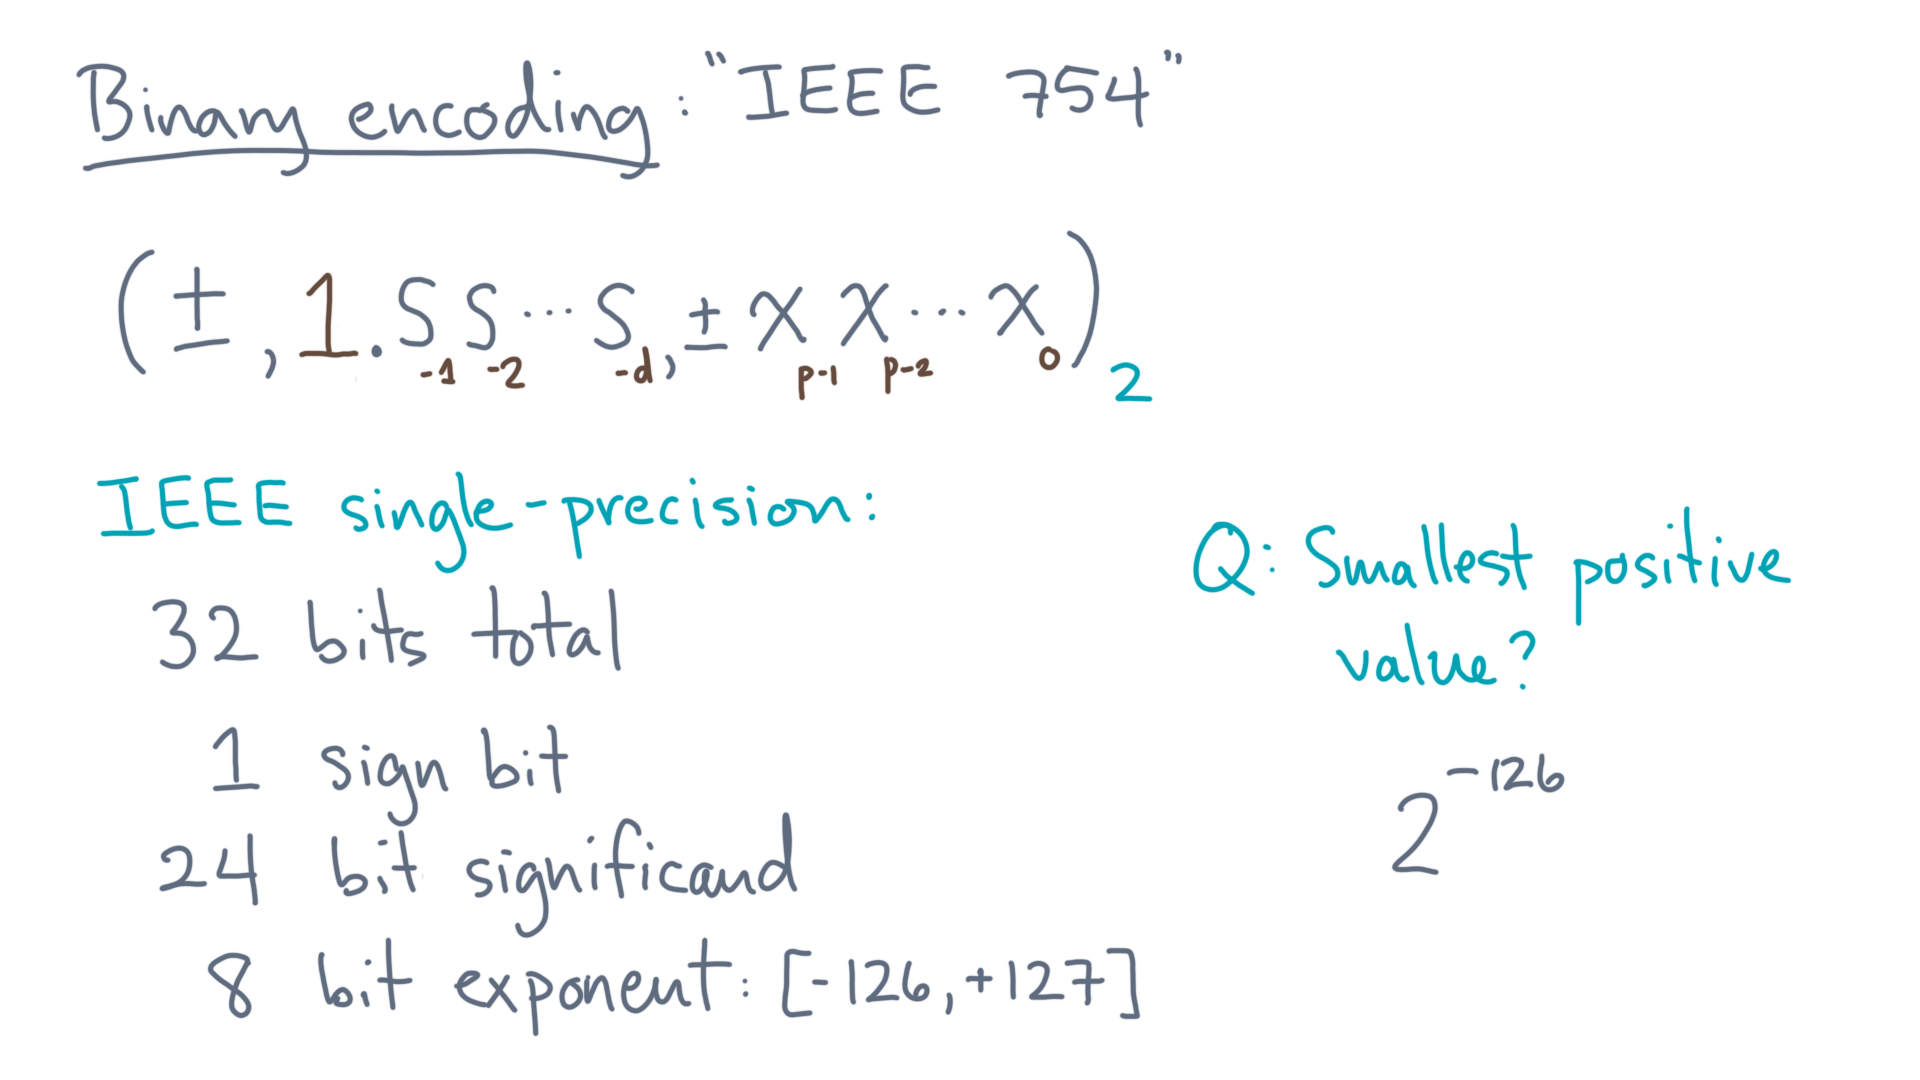 Binary encoding: "IEEE 754"
(±, 1.S₋₁S₋₂···S₋d, ±xₚ₋₁xₚ₋₂···x₀)₂
IEEE single-precision:
32 bits total
1 sign bit
24 bit significand
8 bit exponent: [-126, +127]
Q: Smallest positive
value?
2⁻¹²⁶